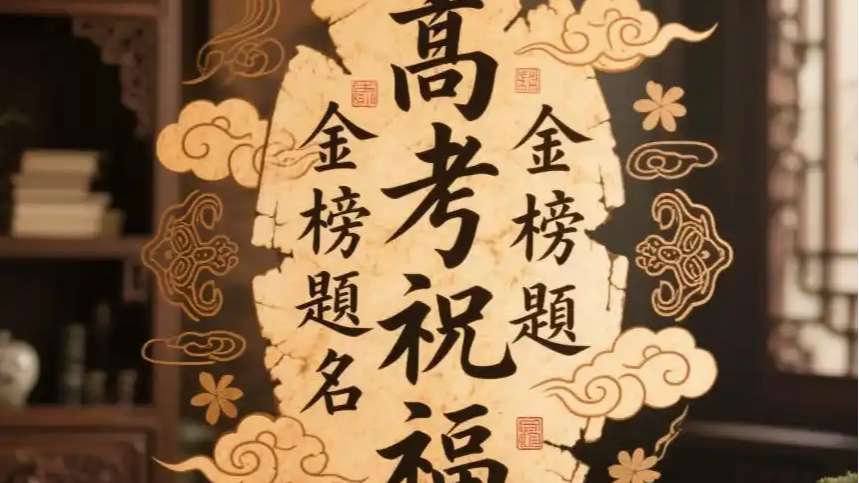 高考祝福
金榜題
金榜題名